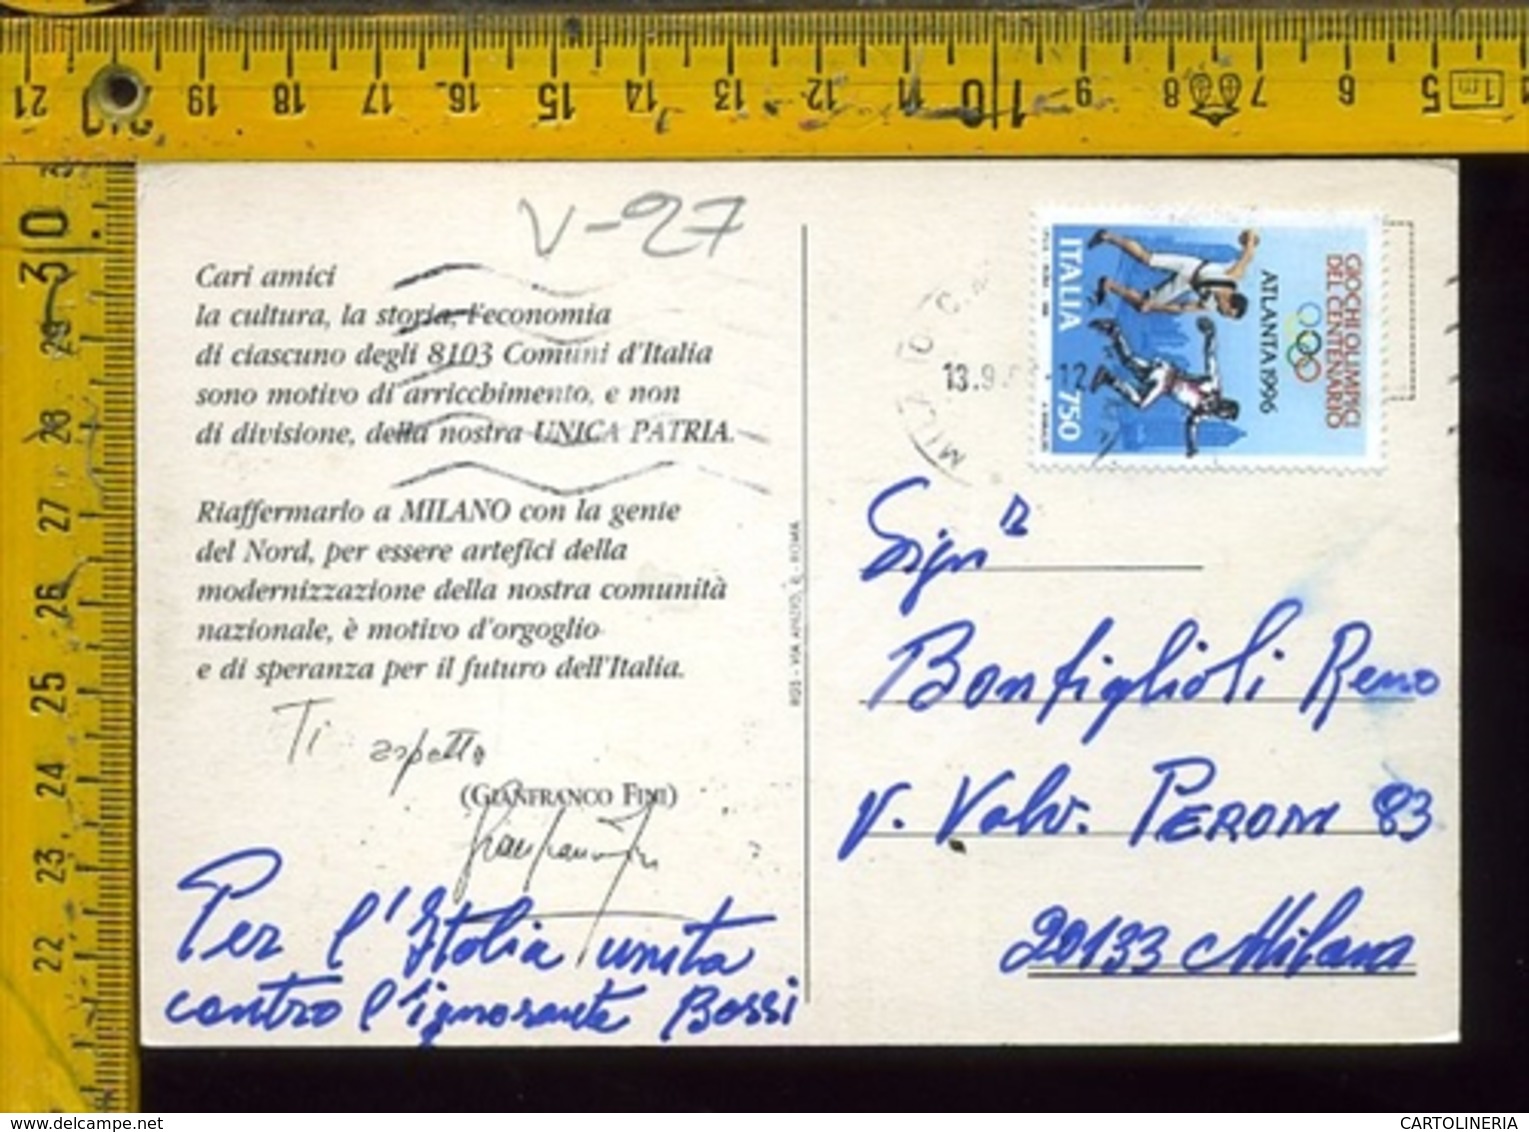 21 20 19 18 17 16 15 14 13 12 11 10 9 8 7 6 5 1m
30
29
28
27
26
25
24
23
22
V-27
Cari amici
la cultura, la storia, l'economia
di ciascuno degli 8103 Comuni d'Italia
sono motivo di arricchimento, e non
di divisione, della nostra UNICA PATRIA.
Riaffermarlo a MILANO con la gente
del Nord, per essere artefici della
modernizzazione della nostra comunità
nazionale, è motivo d'orgoglio
e di speranza per il futuro dell'Italia.
Ti aspetto
(GIANFRANCO FINI)
Gianfranco Fini
Per l'Italia unita
contro l'ignorante Bossi
ROMA
MILANO
13.9. 12
ITALIA 750
ATLANTA 1996
GIOCHI OLIMPICI
DEL CENTENARIO
Sign r
Bonfiglioli Reno
V. Valv. PERONI 83
20133 Milano
delcampe.net
CARTOLINERIA